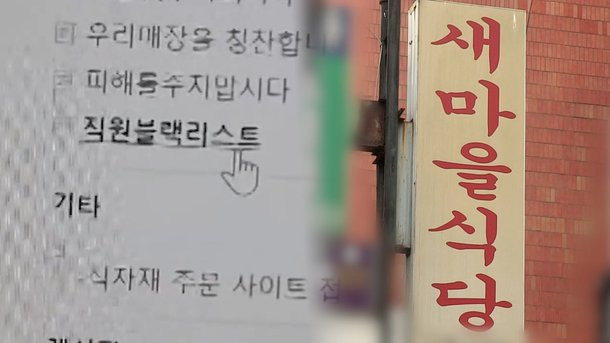 우리매장을 칭찬합니
피해를주지맙시다
직원블랙리스트
기타
식자재 주문 사이트 접
새마을식당